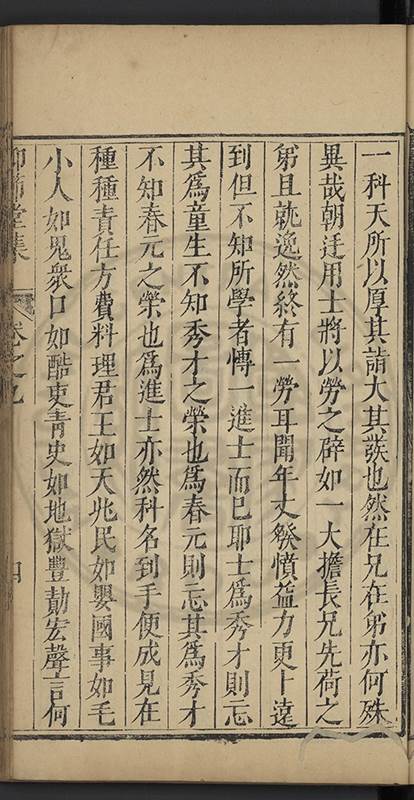 一科天所以厚其諳大其發也然在兄在弟亦何殊
異哉朝廷用士將以勞之辟如一大擔長兄先荷之
弟且就逸然終有一勞耳聞年丈發憤益力更卜遠
到但不知所學者慱一進士而巳耶士爲秀才則忘
其爲童生不知秀才之榮也爲春元則忘其爲秀才
不知春元之榮也爲進士亦然科名到手便成見在
種種責任方費料理君王如天兆民如嬰國事如毛
小人如鬼衆口如酷吏靑史如地獄豐勛宏聲言何
仰節堂集
卷之九
四